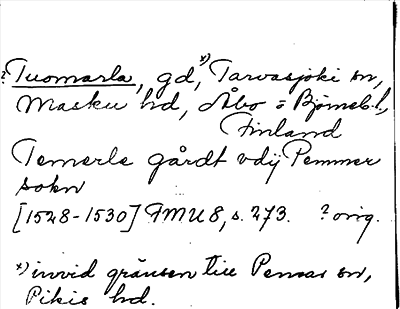 ? Tuomarla, gd, x) Tarvasjoki sn,
Masku hd, Åbo o Björneb.l.,
Finland
Temerle gårdt vdij Pemmer
sokn
[1528-1530] FMU 8, s. 273. ? orig.
x) invid gränsen till Pemar sn,
Pikis hd.